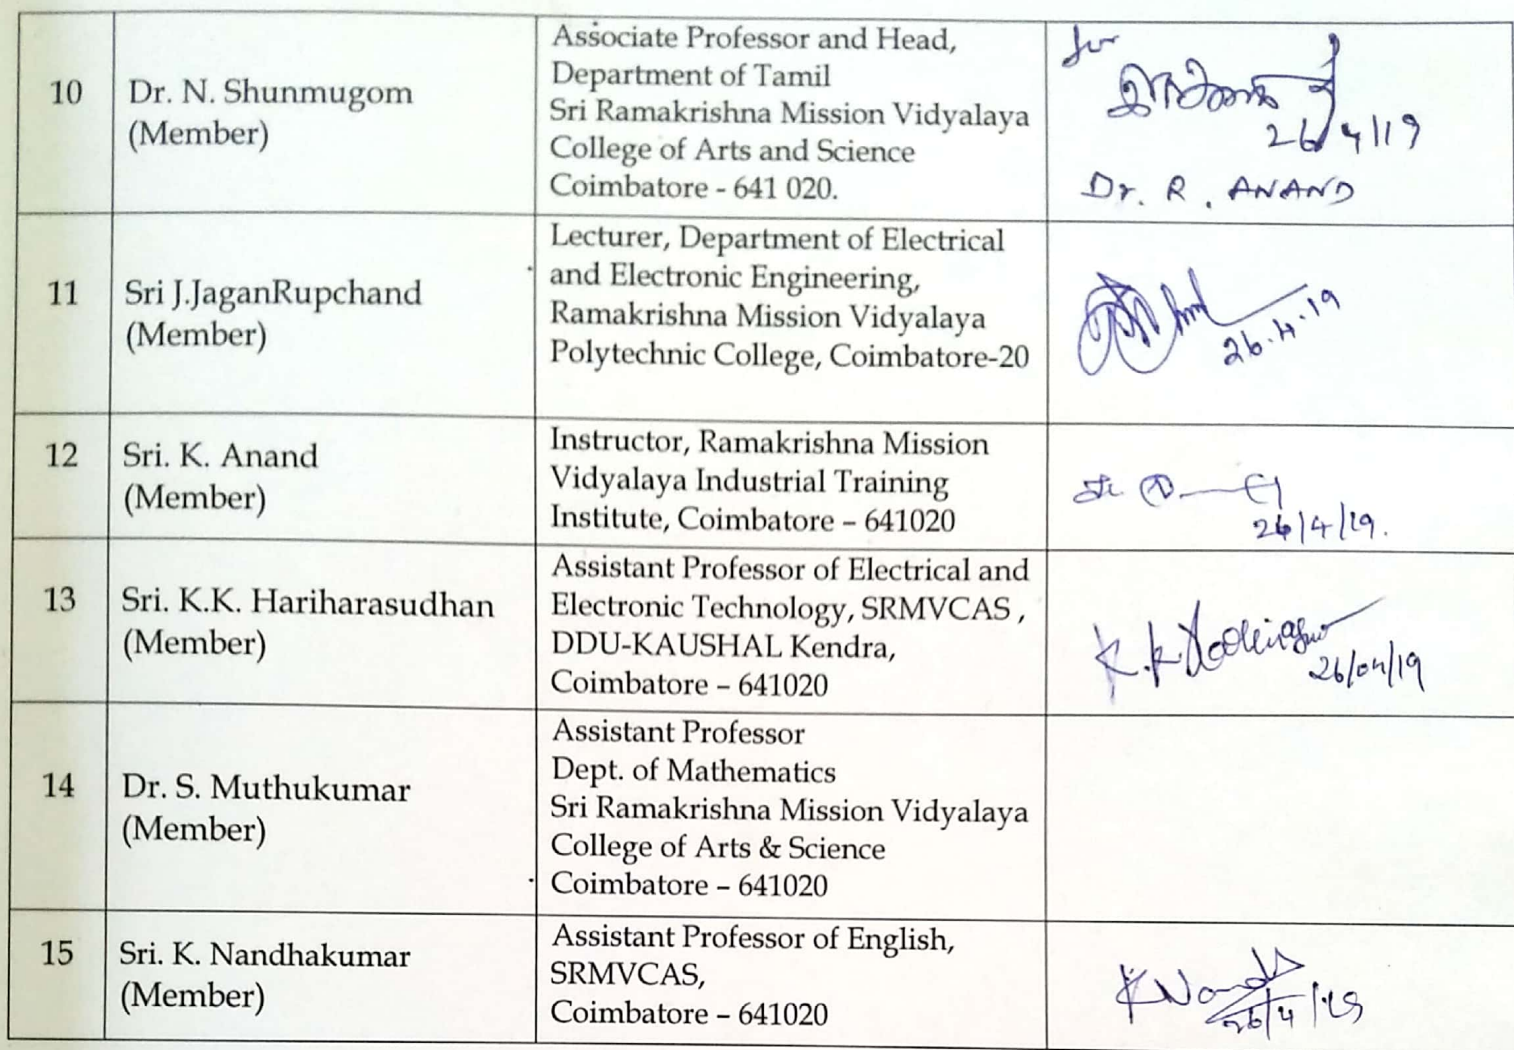 10
Dr. N. Shunmugom
(Member)
Associate Professor and Head,
Department of Tamil
Sri Ramakrishna Mission Vidyalaya
College of Arts and Science
Coimbatore - 641 020.
for
26/4/19
Dr. R. ANAND
11
Sri J.JaganRupchand
(Member)
Lecturer, Department of Electrical
and Electronic Engineering,
Ramakrishna Mission Vidyalaya
Polytechnic College, Coimbatore-20
26.4.19
12
Sri. K. Anand
(Member)
Instructor, Ramakrishna Mission
Vidyalaya Industrial Training
Institute, Coimbatore – 641020
26/4/19.
13
Sri. K.K. Hariharasudhan
(Member)
Assistant Professor of Electrical and
Electronic Technology, SRMVCAS ,
DDU-KAUSHAL Kendra,
Coimbatore – 641020
K.K
26/04/19
14
Dr. S. Muthukumar
(Member)
Assistant Professor
Dept. of Mathematics
Sri Ramakrishna Mission Vidyalaya
College of Arts & Science
Coimbatore – 641020
15
Sri. K. Nandhakumar
(Member)
Assistant Professor of English,
SRMVCAS,
Coimbatore – 641020
26/4/19